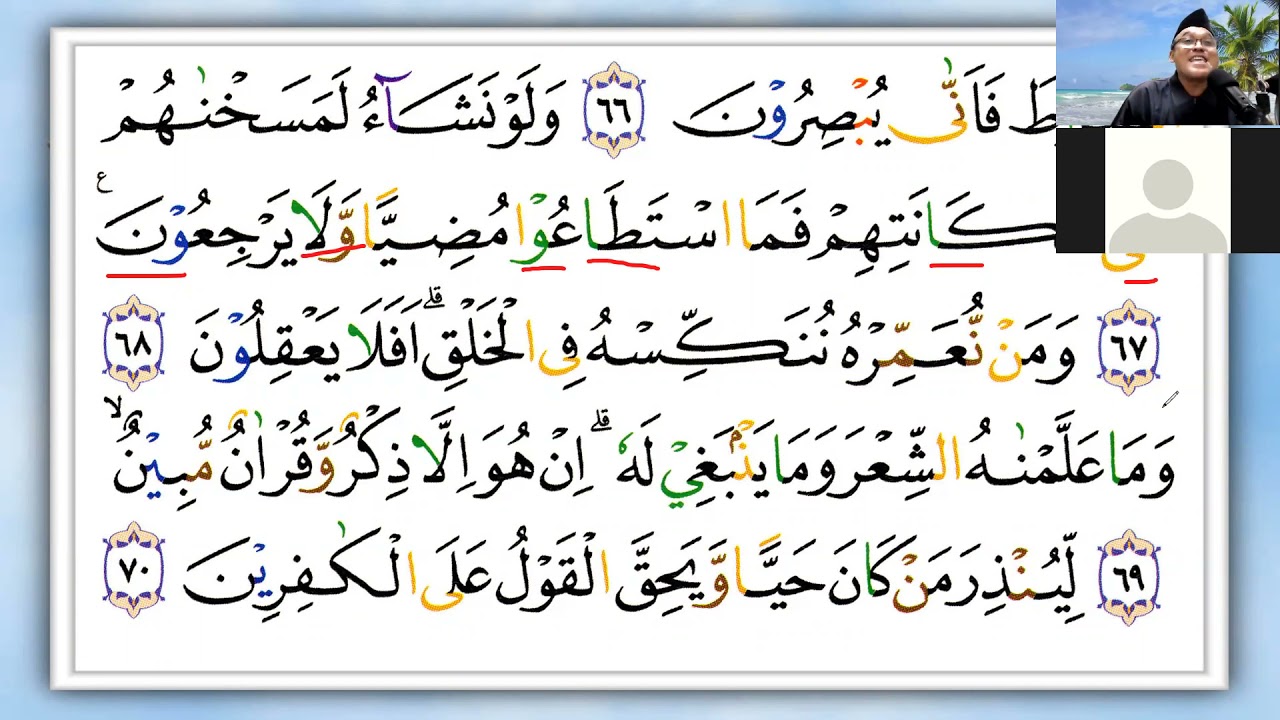 فَاَنّٰى يُبْصِرُوْنَ ٦٦ وَلَوْ نَشَاۤءُ لَمَسَخْنٰهُمْ
كَانَتِهِمْ فَمَا اسْتَطَاعُوْا مُضِيًّا وَّلَا يَرْجِعُوْنَ ࣖ
٦٧ وَمَنْ نُّعَمِّرْهُ نُنَكِّسْهُ فِى الْخَلْقِۗ اَفَلَا يَعْقِلُوْنَ ٦٨
وَمَا عَلَّمْنٰهُ الشِّعْرَ وَمَا يَنْۢبَغِيْ لَهٗۗ اِنْ هُوَ اِلَّا ذِكْرٌ وَّقُرْاٰنٌ مُّبِيْنٌۙ
٦٩ لِّيُنْذِرَ مَنْ كَانَ حَيًّا وَّيَحِقَّ الْقَوْلُ عَلَى الْكٰفِرِيْنَ ٧٠